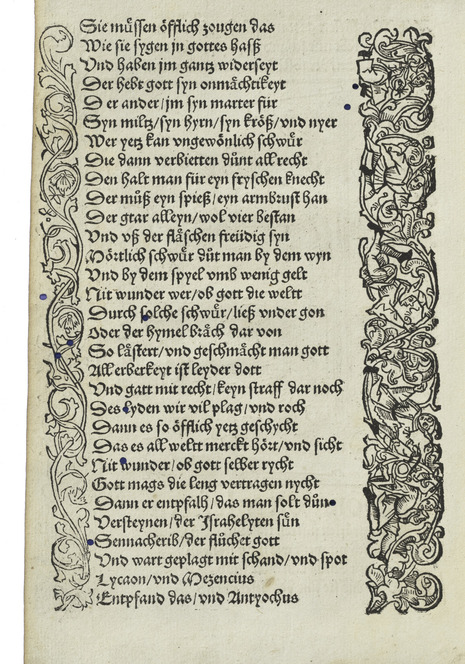 Sie müssen öfflich zougen das
Wie sie sygen jn gottes hasß
Vnd haben jm gantz widerseyt
Der hebt gott syn onmächtikeyt
Der ander/jm syn marter für
Syn miltz/syn hyrn/syn kröß/vnd nyer
Wer yetz kan vngewönlich schwuͤr
Die dann verbietten duͤnt all recht
Den halt man für eyn fryschen knecht
Der muͤß eyn spieß/eyn armbrust han
Der gtar alleyn/wol vier bestan
Vnd vß der fläschen freüdig syn
Mörtlich schwuͤr duͤt man by dem wyn
Vnd by dem spyel vmb wenig gelt
Nit wunder wer/ob gott die weltt
Durch solche schwuͤr/ließ vnder gon
Oder der hymel bräch dar von
So lästert/vnd geschmächt man gott
All erberkeyt ist leyder dott
Vnd gatt mit recht/keyn straff dar noch
Des lyden wir vil plag/vnd roch
Dann es so öfflich yetz geschycht
Das es all weltt merckt hört/vnd sicht
Nit wunder/ob gott selber rycht
Gott mags die leng vertragen nycht
Dann er entpfalh/das man solt duͤn
Versteynen/der Jsrahelyten suͤn
Sennacherib/der fluͤchet gott
Vnd wart geplagt mit schand/vnd spot
Lycaon/vnd Mezencius
Entpfand das/vnd Antyochus